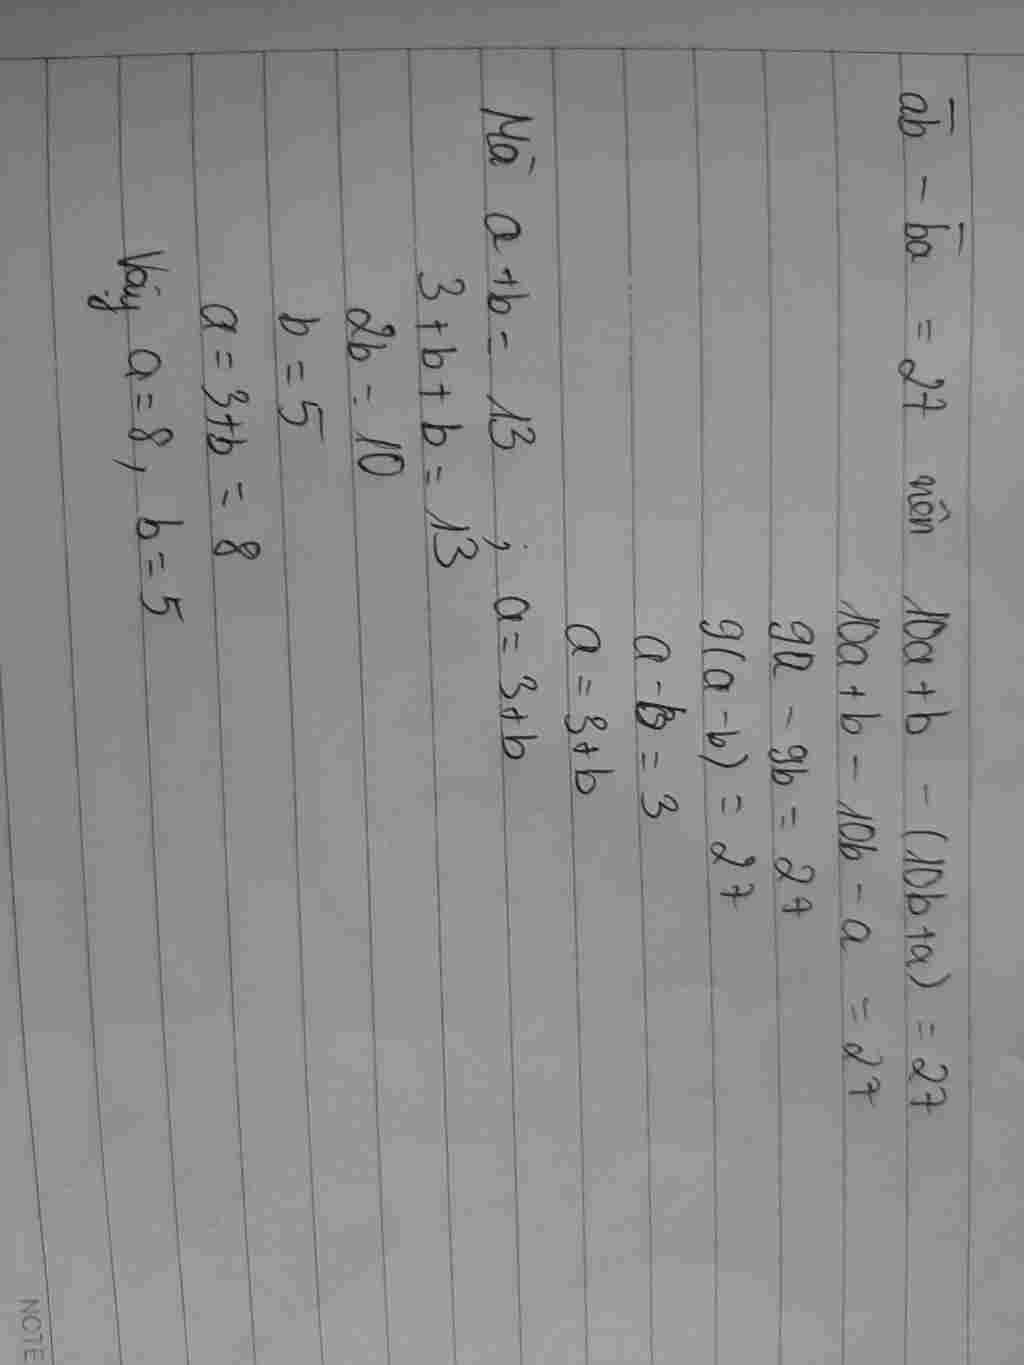 ab - ba = 27 nên 10a+b - (10b+a) = 27
10a + b - 10b - a = 27
9a - 9b = 27
9(a - b) = 27
a - b = 3
a = 3+b
Mà a + b = 13 ; a = 3+b
3 + b + b = 13
2b = 10
b = 5
a = 3+b = 8
Vậy a = 8, b = 5
NOTE